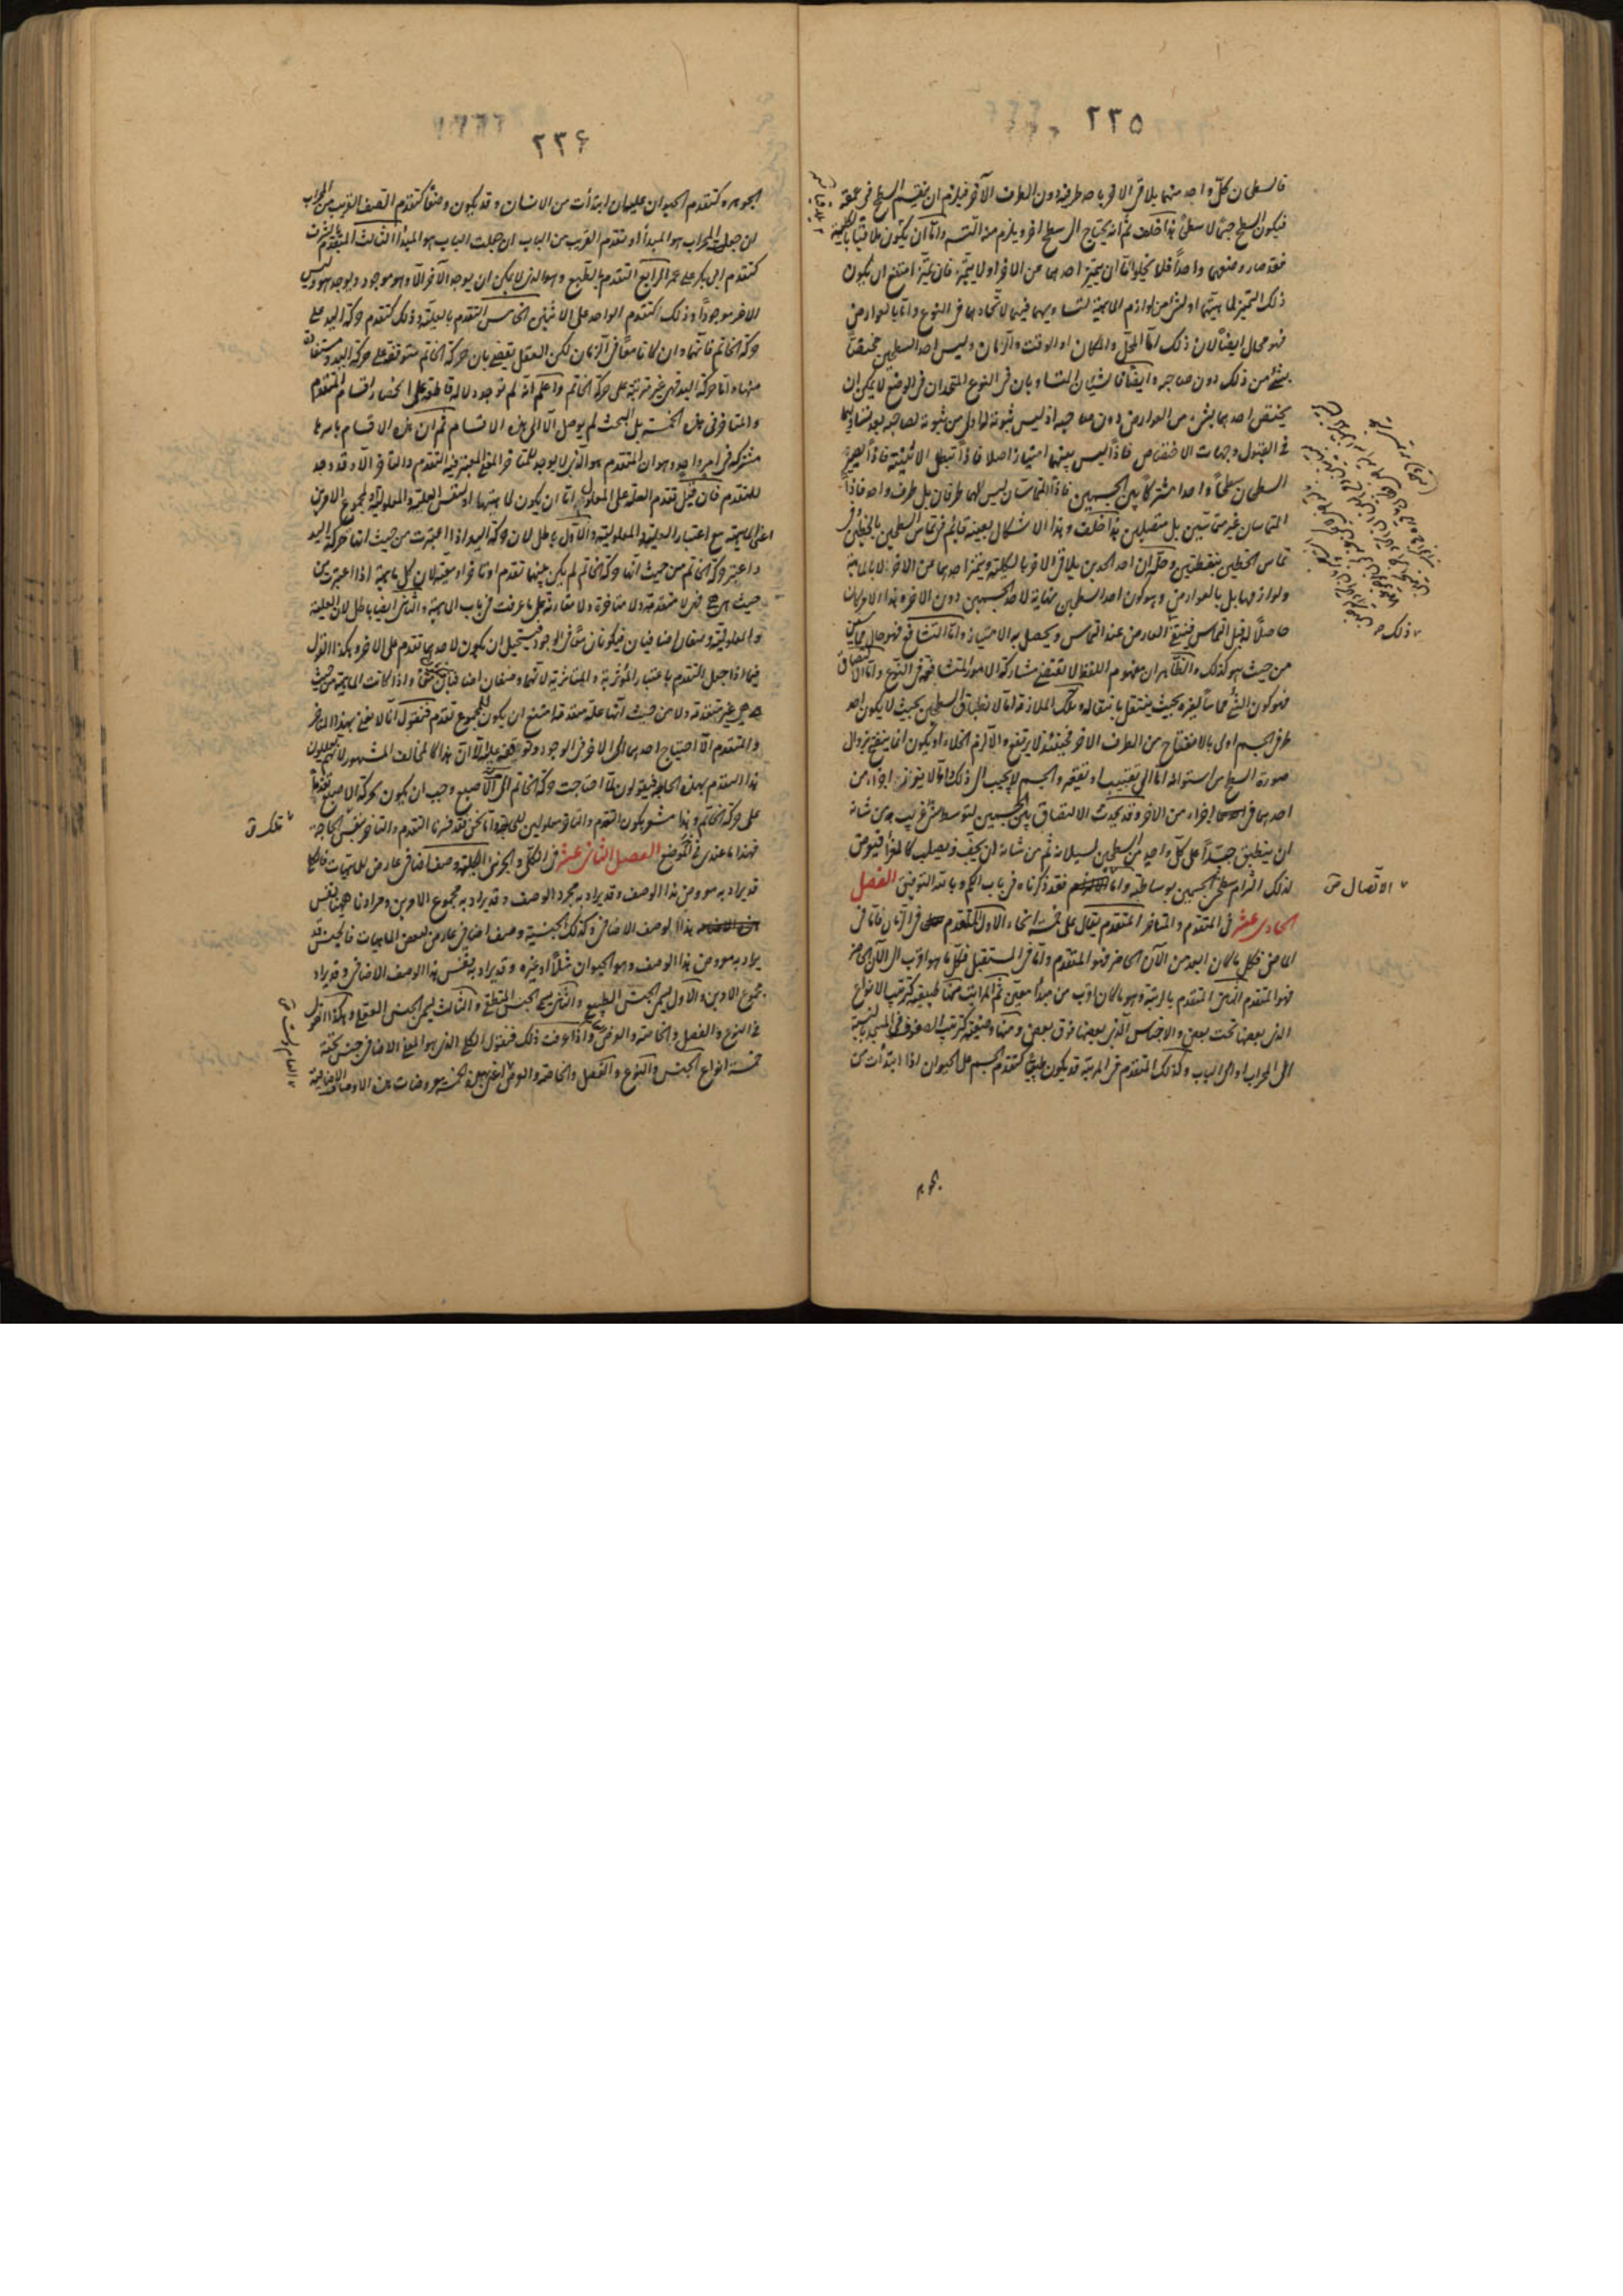 ٢٣٥
فالسطحان كلّ واحد منهما يلاقى الاخر باحد طرفيه دون الطرف الآخر فيلزم ان ينقسم السطح فى عمقه
فيكون السطح جسمًا لا سطحًا هذا خلف ثم انه يحتاج الى سطح اخر ويلزم منه التسلسل وامّا ان يكون ملاقيًا بالكلية
فقد صار وضعهما واحدًا فلا يخلو امّا ان يتميّز احدهما عن الاخر او لا يتميّز فان تميّز امتنع ان يكون
ذلك التميز لماهيتهما او لشئ من لوازم الماهية لتساويهما فيهما لاتحادهما فى النوع وامّا بالعوارض
فهو محال ايضًا لان ذلك امّا المحل والمكان او الوقت والزمان وليس احد السطحين مختصًّا
بشئ من ذلك دون صاحبه وايضًا فالشيئان المتساويان فى النوع المتحدان فى الوضع لا يمكن ان
يختص احدهما بشئ من العوارض دون صاحبه اذ ليس ثبوته لهذا اولى من ثبوته لصاحبه بعد تساويهما
فى القبول وجهات الاختصاص فاذًا ليس بينهما امتياز اصلا فاذًا تبطل الاثنينيّة فاذًا يصير
السطحان سطحًا واحدا مشتركًا بين الجسمين فاذًا المتماسّان ليس لهما طرفان بل طرف واحد فاذًا
المتماسان غير متماسّين بل متصلين هذا خلف وهذا الاشكال بعينه قائم فى تماس السطحين بالخطين وفى
تماس الخطين بنقطتين وحلّه ان احد الحدين يلاقى الاخر بالكلية ويتميز احدهما عن الاخر لا بالماهية
ولوازمها بل بالعوارض وهو كون احد السطحين نهاية لاحد الجسمين دون الاخر وهذا الامر كان
حاصلًا قبل التماس فيبقى العارض عند التماس ويحصل به الامتياز وامّا التشافع فهو حال مماس
من حيث هو كذلك والظاهر ان مفهوم اللفظ لا يقتضى مشاركة الامور المتشافعة فى النوع وامّا الالتصاق
فهو كون الشئ مماسًّا لغيره بحيث ينتقل بانتقاله وتلك الملازمة امّا لانطباق السطحين بحيث لا يكون احد
طرفى الجسم اولى بالانفتاح من الطرف الاخر فحينئذ لا يرتفع والا لزم الخلاء او يكون انما ينفع بزوال
صورة السطح من استوائه امّا الى تقبيب او تقعير والجسم لا يجيب الى ذلك وامّا لانغراز اجزاء من
احدهما فى اجزاء من الاخر وقد يحدث الالتصاق بين الجسمين لتوسط جسم غريب من شانه
ان ينطبق جيّدًا على كلّ واحد من السطحين لسيلانه ثم من شانه ان يجفّ ويصلب كالغراء فيعرض
لذلك التزام سطحى الجسمين بوساطته وامّا فقد ذكرناه فى باب الكم وبالله التوفيق الفصل
الحادى عشر فى المتقدم والمتاخر المتقدم يقال على خمسة انحاء الاول المتقدم فى الزمان فامّا فى
الماضى فكل ما كان ابعد من الآن الحاضر فهو المتقدم وامّا فى المستقبل فكل ما هو اقرب الى الآن الحاضر
فهو المتقدم الثانى المتقدم بالرتبة وهو ما كان اقرب من مبدأ معيّن ثم المراتب منها طبيعية كترتيب الانواع
التى بعضها تحت بعض والاجناس التى بعضها فوق بعض ومنها وضعية كترتيب الصفوف فى المسجد بالنسبة
الى المحراب او الى الباب وكذلك المتقدم فى المرتبة قد يكون طبيعيًّا كتقدم الجسم على الحيوان اذا ابتدأت من
ذلك
الاتّصال ق
٢٣٦
الجوهر وكتقدم الحيوان عليهما ان ابتدأت من الانسان وقد يكون وضعًا كتقدم الصف القريب من المحراب
ان جعلت المحراب هو المبدأ او تقدم القريب من الباب ان جعلت الباب هو المبدأ الثالث المتقدم بالشرف
كتقدم ابى بكر على عمر الرابع التقدم بالطبع وهو الذى لا يمكن ان يوجد الآخر الا وهو موجود ويوجد هو وليس
الاخر موجودًا وذلك كتقدم الواحد على الاثنين الخامس التقدم بالعلية وذلك كتقدم حركة اليد على
حركة الخاتم فانهما وان كانا معًا فى الزمان لكن العقل يقضى بان حركة الخاتم متوقفة على حركة اليد ومستفادة
منها وامّا حركة اليد فهى غير مترتبة على حركة الخاتم واعلم انه لم توجد دلالة قاطعة على انحصار اقسام المتقدم
والمتاخر فى هذه الخمسة بل البحث لم يوصل الا الى هذه الاقسام ثم ان هذه الاقسام باسرها
مشتركة فى امر واحد وهو ان المتقدم هو الذى لا يوجد للمتاخر المعنى المعتبر فيه التقدم والتاخر الا وقد وجد
للمتقدم فان قيل تقدم العلة على المعلول امّا ان يكون لماهيتهما او لنفس العلية والمعلولية او لمجموع الامرين
اعنى الماهية مع اعتبار العلية والمعلولية والاول باطل لان حركة اليد اذا اعتبرت من حيث انها حركة اليد
واعتبر حركة الخاتم من حيث انها حركة الخاتم لم يكن بينهما تقدم او تاخر او معية لان كل ماهية اذا اعتبرت من
حيث هى هى فهى لا متقدمة ولا متاخرة ولا مقارنة على ما عرفت فى باب الماهية والثانى ايضا باطل لان العلية
والمعلولية وصفان اضافيان فيكونان معًا فى الوجود فيستحيل ان يكون لاحدهما تقدم على الاخر وهكذا القول
فيما اذا جعل المتقدم باعتبار المؤثرية والمتاثرية لانهما وصفان اضافيان واذا كانت الماهية من حيث
هى هى غير متقدمة ولا من حيث انها علة متقدمة امتنع ان يكون للمجموع تقدم فنقول انا لا نعنى بهذا التاخر
والمتقدم الا احتياج احدهما الى الاخر فى الوجود وتوقفه عليه الا ان هذا كالمخالف المشهور لانهم يعللون
هذا التقدم بهذه الحاجة فيقولون لمّا احتاجت حركة الخاتم الى الاصبع وجب ان يكون لحركة الاصبع تقدم
على حركة الخاتم وهذا مشعر بكون التقدم والتاخر معلولين للحاجة وامّا نحن فقد فسّرنا التقدم والتاخر بنفس الحاجة
فهذا ما عندى فى الموضع الفصل الثانى عشر فى الكلّى والجزئى الكلية وصف اضافى عارض للماهيات فالكلى
قد يراد به معروض هذا الوصف وقد يراد به مجرد الوصف وقد يراد به مجموع الامرين ومرادنا ههنا نفس
هذا الوصف الاضافى وكذلك الجنسية وصف اضافى عارض لبعض الماهيات فالجنس قد
يراد به معروض هذا الوصف وهو الحيوان مثلًا او غيره وقد يراد به نفس هذا الوصف الاضافى وقد يراد
مجموع الامرين والاول يسمى الجنس الطبيعى والثانى يسمى الجنس المنطقى والثالث يسمى الجنس العقلى وهكذا القول
فى النوع والفصل والخاصة والعرض واذا عرفت ذلك فنقول الكلى الذى هو المعنى الاضافى جنس تحته
خمسة انواع الجنس والنوع والفصل والخاصة والعرض العام معروضات هذه الاوصاف الاضافية
تلك ق
العام ق